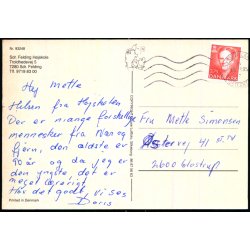 Nr. 93248
Sdr. Felding Højskole
Troldhedevej 5
7280 Sdr. Felding
Tlf. 9719 83 00
Hej Mette
Hilsen fra Højskolen
Der er mange forskellige
mennesker fra Nær og
fjern, den ældste er
90 år og da jeg er
den yngste, det er
meget lærerigt
Hav det godt, vi ses
Doris
Printed in Denmark
DANMARK
Fru Mette Simonsen
Østervej 41
2600 Glostrup